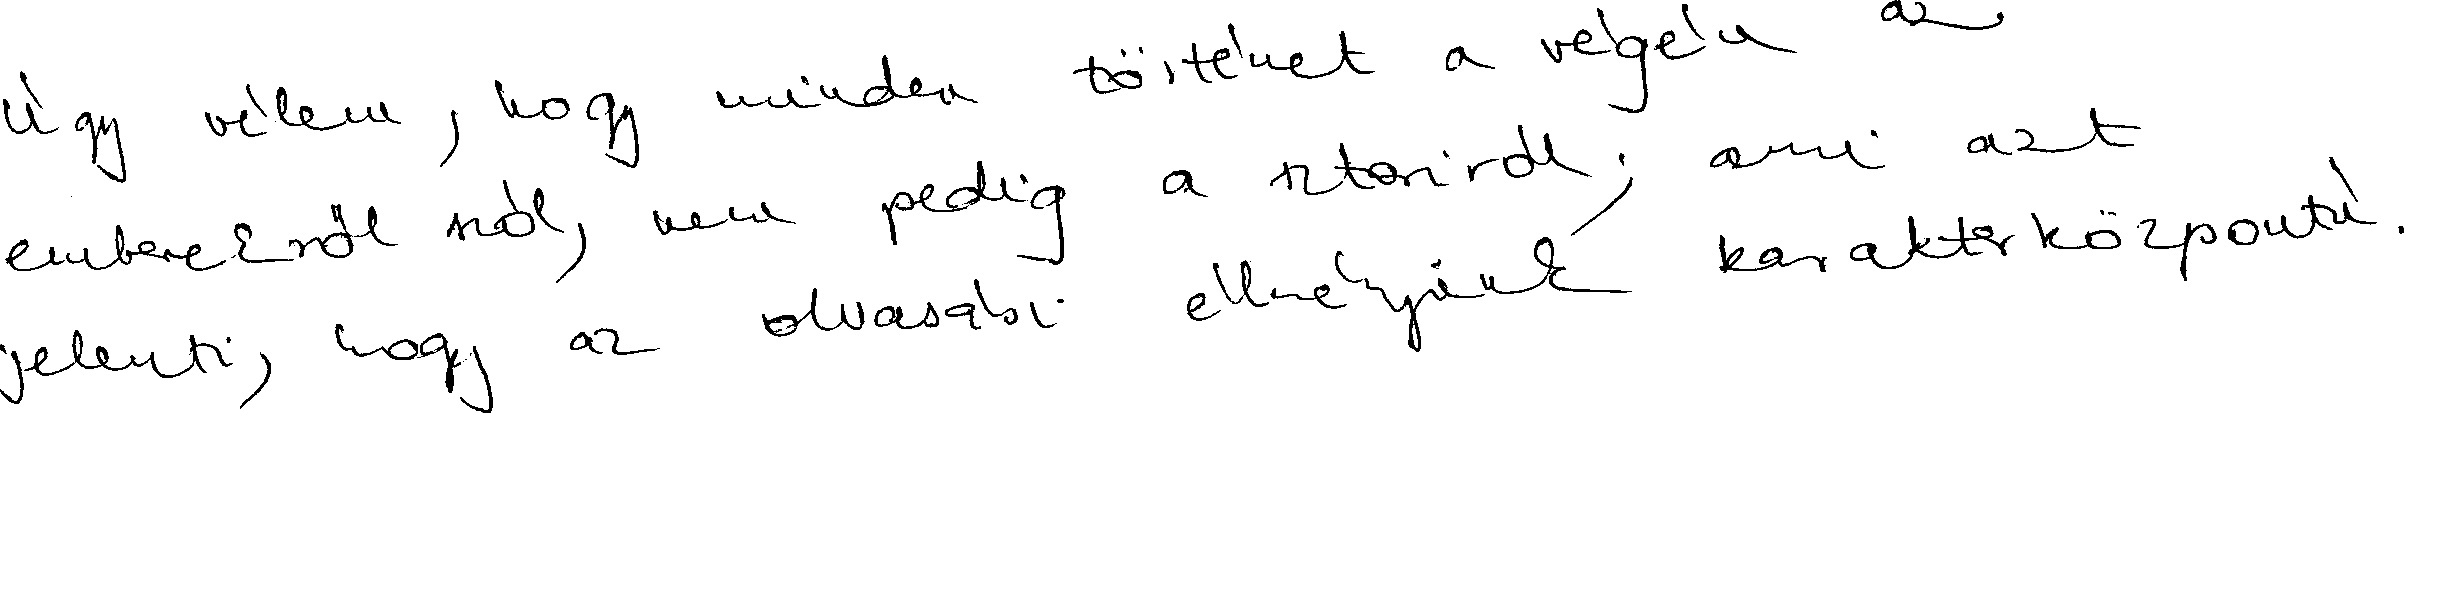 Úgy vélem, hogy minden történet a végén az
emberekről szól, nem pedig a sztoriról, ami azt
jelenti, hogy az olvasási élményünk karakterközpontú.